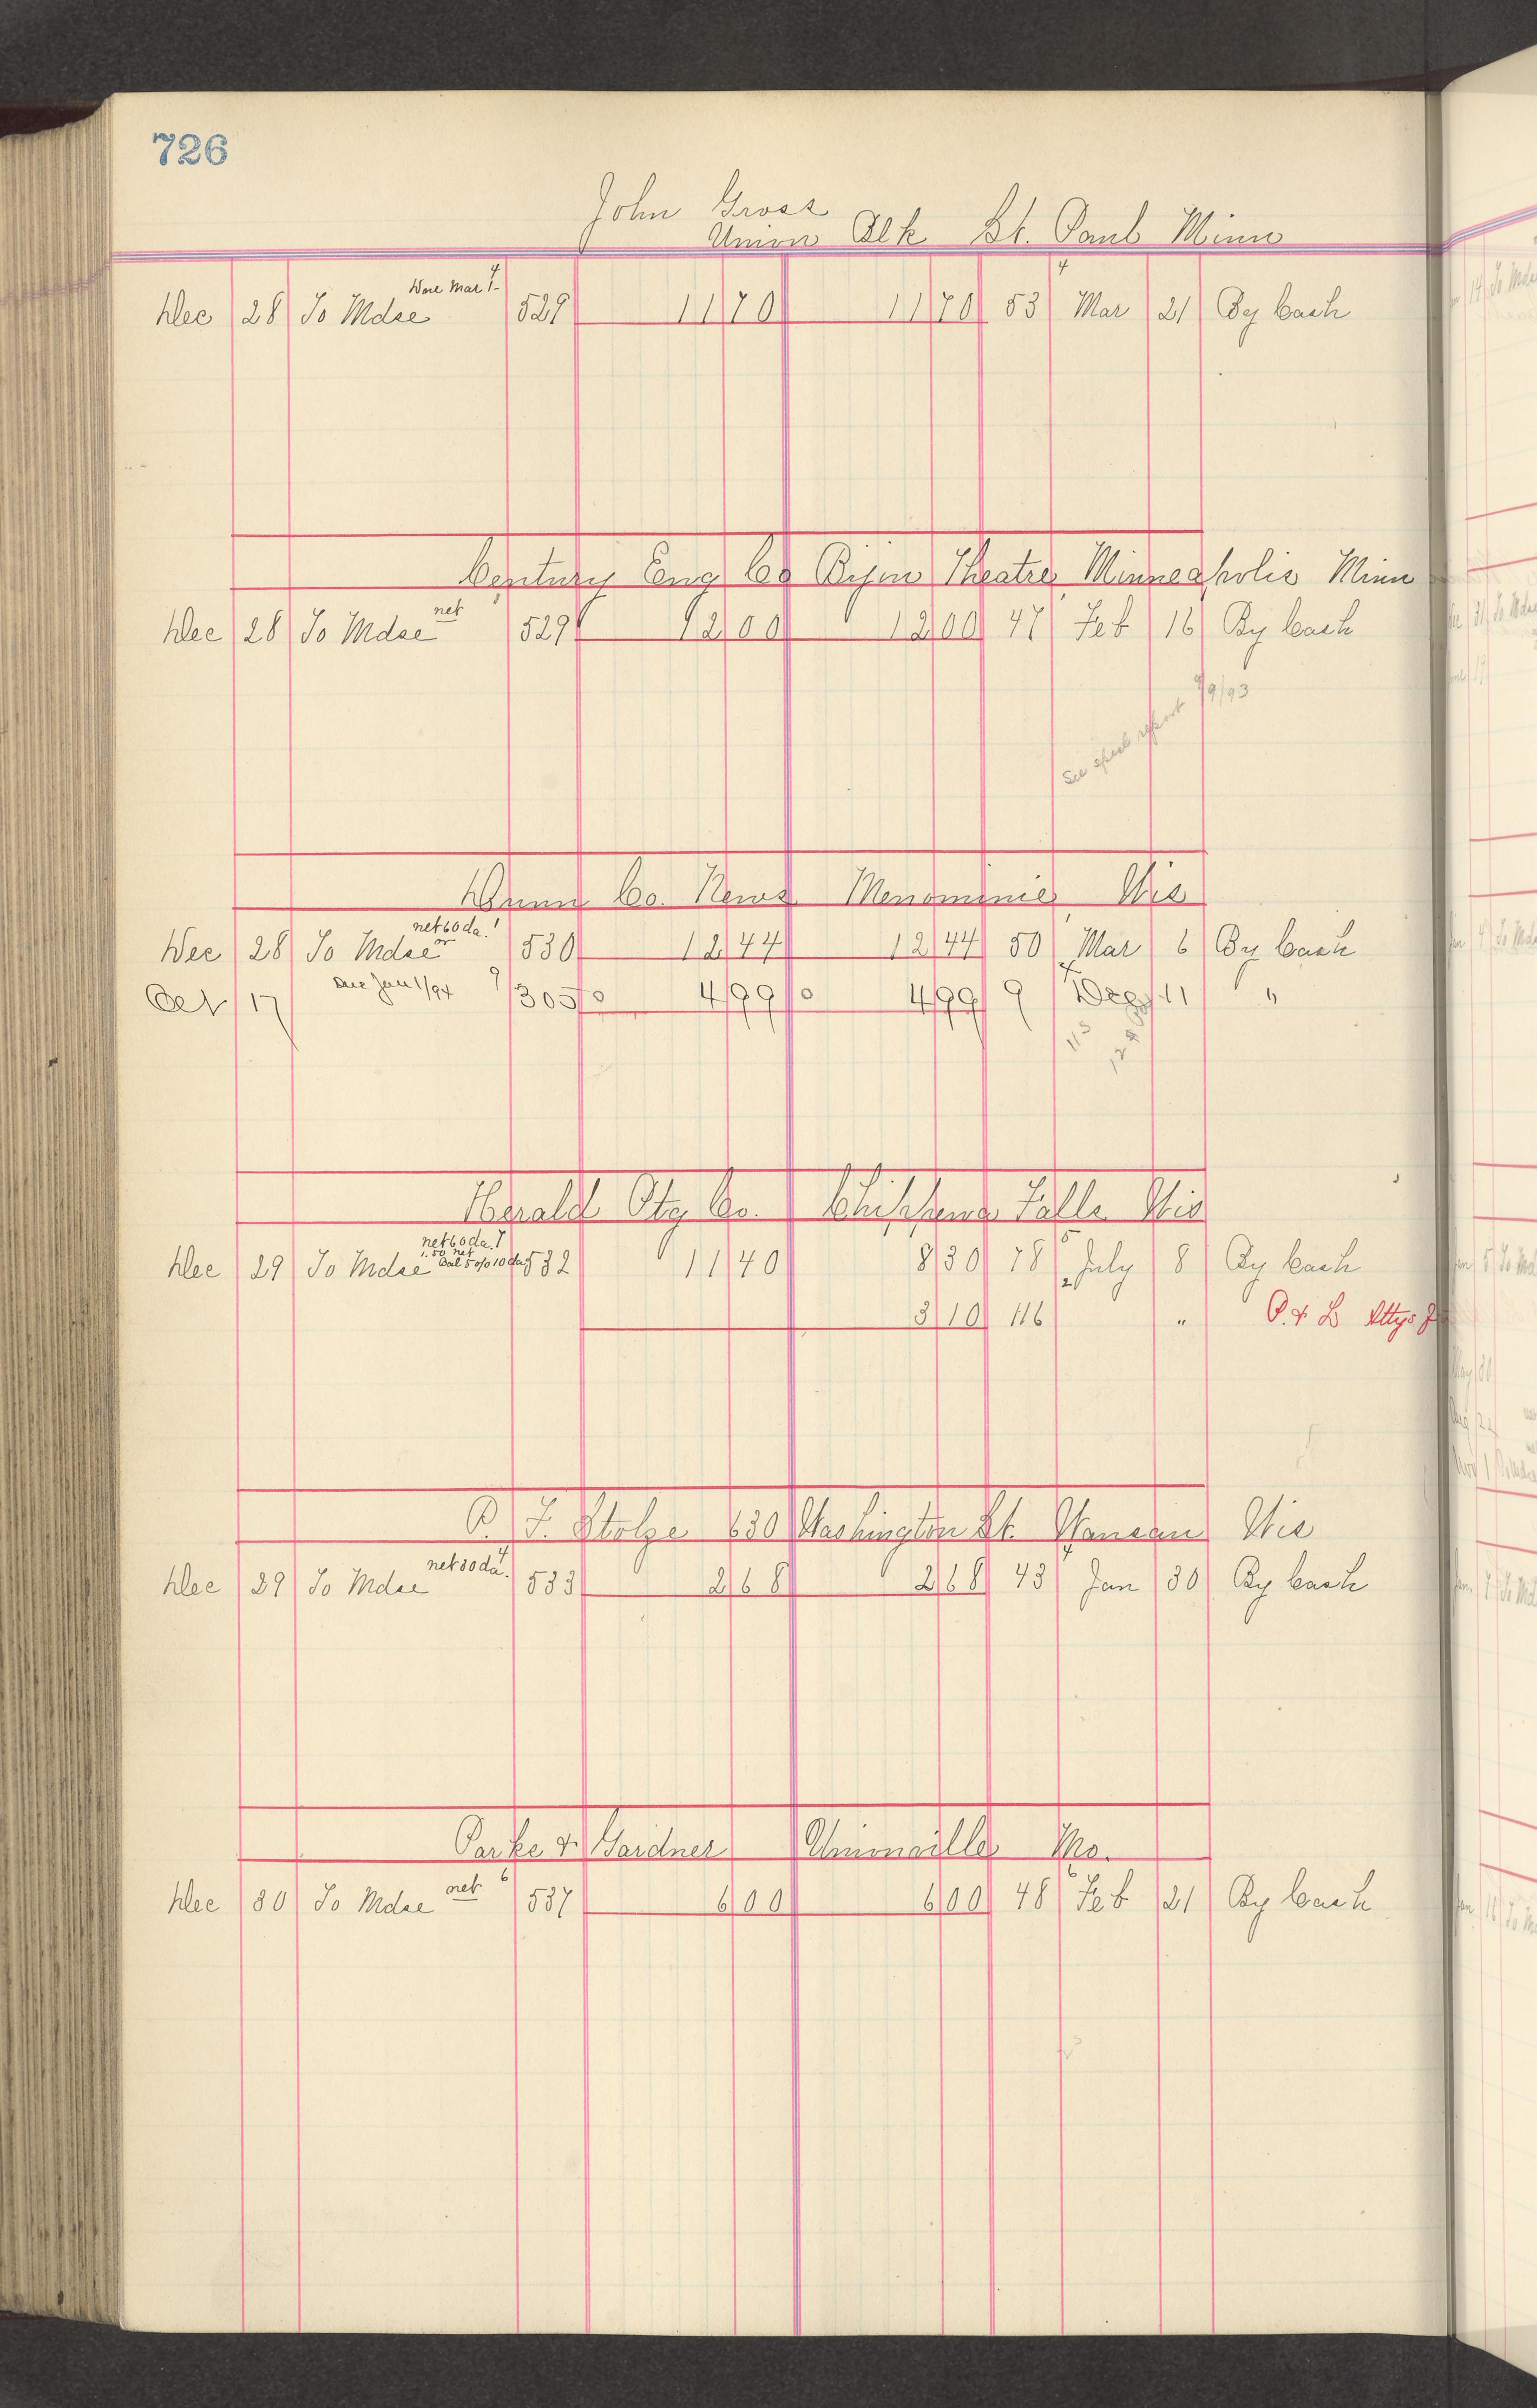 726
John Gross
Union Blk St. Paul Minn
Due Mar 1- 4
Dec 28 To Mdse 529 11 70 11 70 53 Mar 21 By Cash
Century Eng Co Bijou Theatre Minneapolis Minn
Dec 28 To Mdse net 529 12 00 12 00 47 Feb 16 By Cash
See specl report 9/9/93
Dunn Co. News Menominie Wis
net 60 da.
Dec 28 To Mdse 530 12 44 12 44 50 Mar 6 By Cash
Oct 17 due Jan 1/94 305 4 99 4 99 9 Dec 11 "
Herald Ptg Co. Chippewa Falls Wis
net 60 da.
1.50 net
Dec 29 To Mdse Bal 5 o/o 10 da 532 11 40 8 30 78 July 8 By Cash
3 10 116 " P. & L Attys
P. F. Stolze 630 Washington St. Wausau Wis
net 30 da.
Dec 29 To Mdse 533 2 68 2 68 43 Jan 30 By Cash
Parke & Gardner Unionville Mo.
Dec 30 To Mdse net 6 537 6 00 6 00 48 Feb 21 By Cash